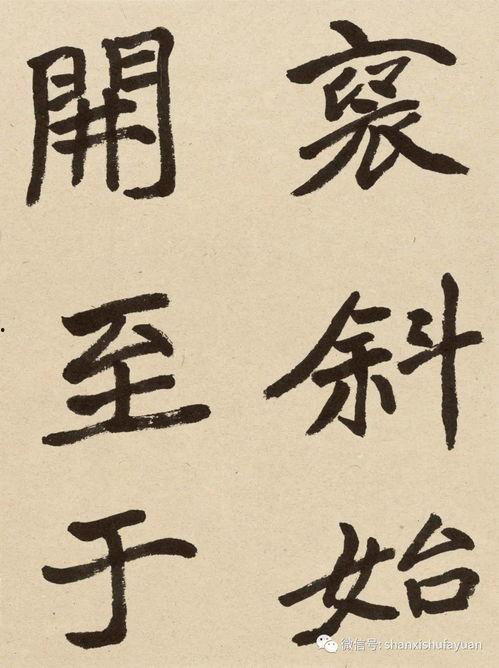 褒斜始
開至于
微信号: shanxishufayuan